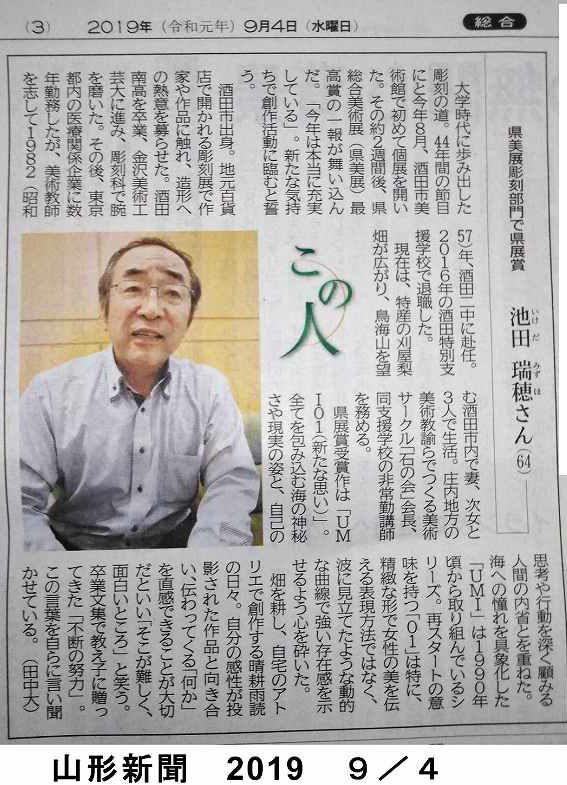 (3) 2019年(令和元年)9月4日(水曜日) 総合
県美展彫刻部門で県展賞
池田 瑞穂さん(64)
いけだ みずほ
この人
大学時代に歩み出した
彫刻の道。44年間の節目
にと今年8月、酒田市美
術館で初めて個展を開い
た。その約2週間後、県
総合美術展(県美展)最
高賞の一報が舞い込ん
だ。「今年は本当に充実
している」。新たな気持
ちで創作活動に臨むと誓
う。
酒田市出身。地元百貨
店で開かれる彫刻展で作
家や作品に触れ、造形へ
の熱意を募らせた。酒田
南高を卒業、金沢美術工
芸大に進み、彫刻科で腕
を磨いた。その後、東京
都内の医療関係企業に数
年勤務したが、美術教師
を志して1982(昭和
57)年、酒田二中に赴任。
2016年の酒田特別支
援学校で退職した。
現在は、特産の刈屋梨
畑が広がり、鳥海山を望
む酒田市内で妻、次女と
3人で生活。庄内地方の
美術教諭らでつくる美術
サークル「石の会」会長、
同支援学校の非常勤講師
を務める。
県展賞受賞作は「UM
I01(新たな思い)」。
全てを包み込む海の神秘
さや現実の姿と、自己の
思考や行動を深く顧みる
人間の内省とを重ねた。
海への憧れを具象化した
「UMI」は1990年
頃から取り組んでいるシ
リーズ。再スタートの意
味を持つ「01」は特に、
精緻な形で女性の美を伝
える表現方法ではなく、
波に見立てたような動的
な曲線で強い存在感を示
せるよう心を砕いた。
畑を耕し、自宅のアト
リエで創作する晴耕雨読
の日々。自分の感性が投
影された作品と向き合
い、伝わってくる「何か」
を直感できることが大切
だといい「そこが難しく、
面白いところ」と笑う。
卒業文集で教え子に贈っ
てきた「不断の努力」。
この言葉を自らに言い聞
かせている。(田中大)
山形新聞 2019 9/4